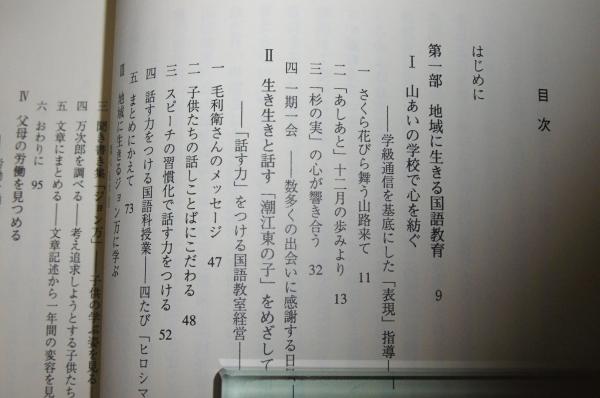 目次
はじめに
第一部 地域に生きる国語教育 9
Ⅰ 山あいの学校で心を紡ぐ
――学級通信を基底にした「表現」指導――
一 さくら花びら舞う山路来て 11
二 「あしあと」十二月の歩みより 13
三 「杉の実」の心が響き合う 32
四 一期一会 ――数多くの出会いに感謝する日
Ⅱ 生き生きと話す「潮江東の子」をめざして
――「話す力」をつける国語教室経営――
一 毛利衛さんのメッセージ 47
二 子供たちの話しことばにこだわる 48
三 スピーチの習慣化で話す力をつける 52
四 話す力をつける国語科授業――四たび「ヒロシマ
五 まとめにかえて 73
Ⅲ 地域に生きるジョン万に学ぶ
三 聞き書き集「ジョン万」 子供の学ぶ姿を見る
四 万次郎を調べる――考え追求しようとする子供た
五 文章にまとめる――文章記述から一年間の変容を見
六 おわりに 95
Ⅳ 父母の労働を見つめる